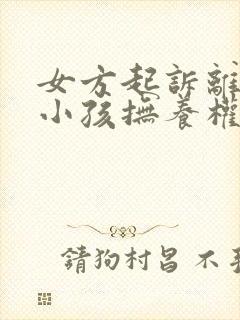 女方起訴離
小孩撫養權
請狗村呂 不